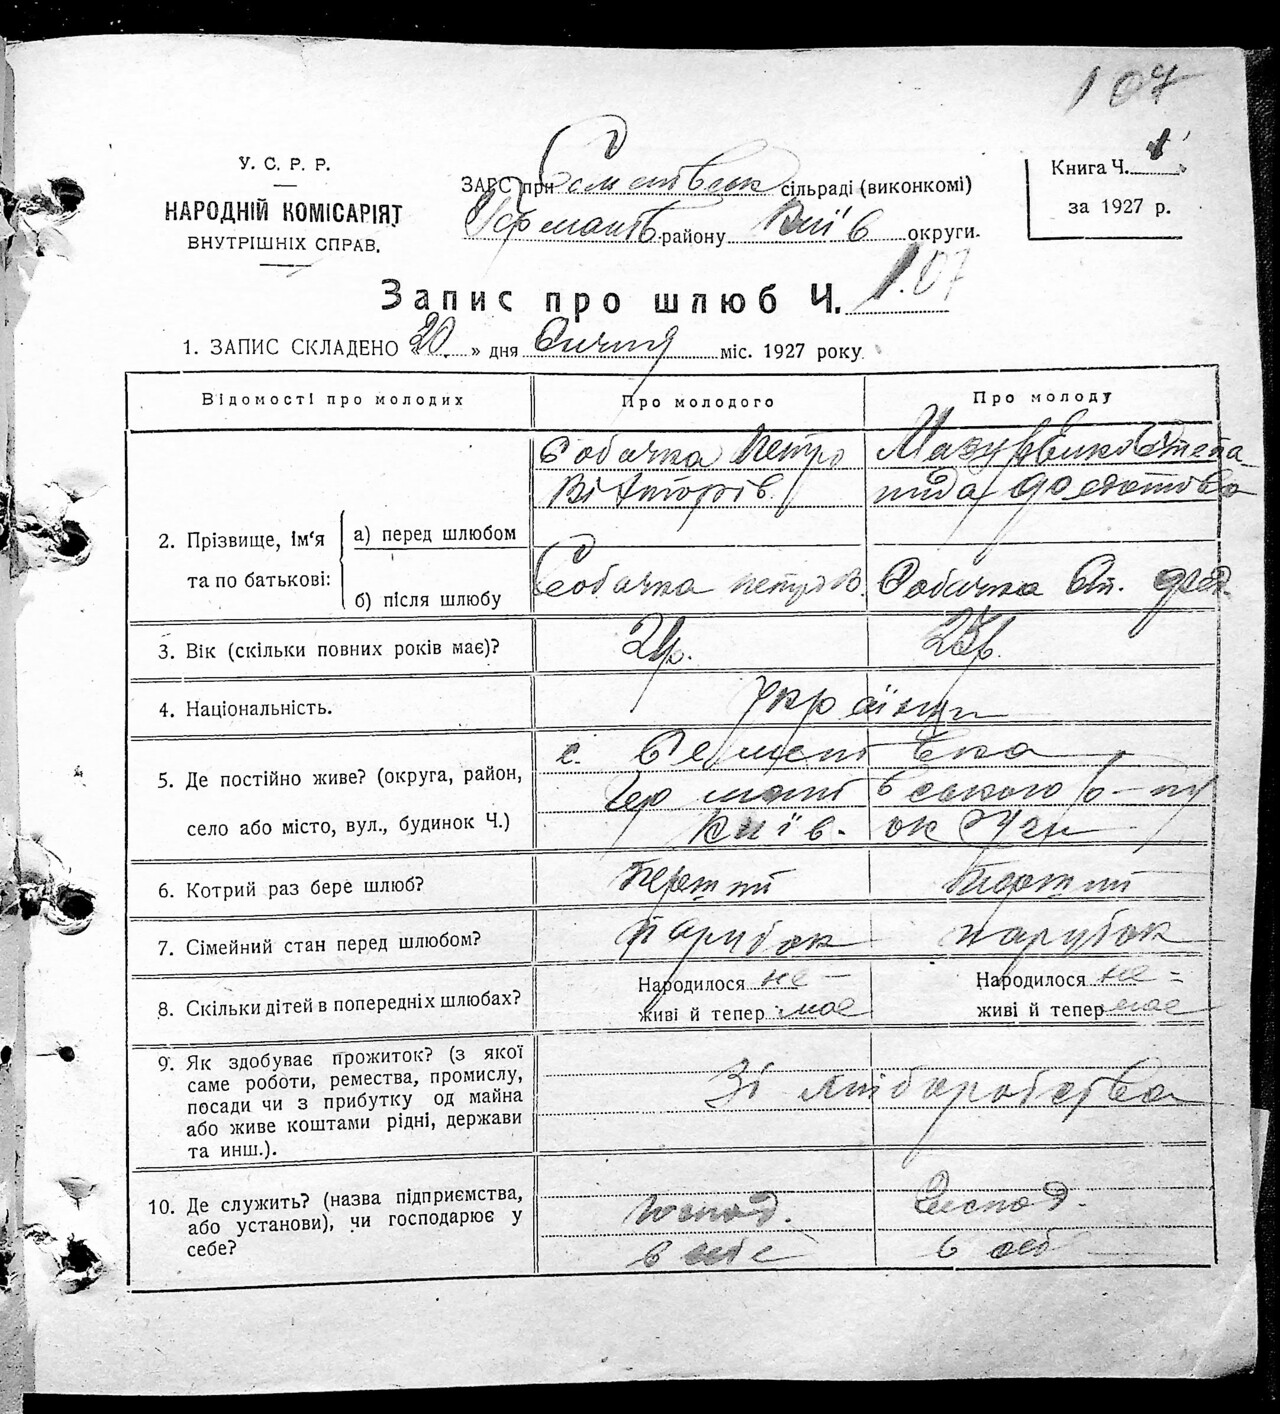 107
У. С. Р. Р.
НАРОДНІЙ КОМІСАРІЯТ
ВНУТРІШНІХ СПРАВ.
ЗАГС при сільраді (виконкомі)
району Київ округи.
Книга Ч. 1
за 1927 р.
Запис про шлюб Ч. 107
1. ЗАПИС СКЛАДЕНО 20 » дня Січня міс. 1927 року
Відомості про молодих Про молодого Про молоду
2. Прізвище, ім'я та по батькові:
а) перед шлюбом
Собачка Петро
Вікторів
б) після шлюбу
Собачка Петро В. Собачка Ст.
3. Вік (скільки повних років має)? 
4. Національність. Українці
5. Де постійно живе? (округа, район,
село або місто, вул., будинок Ч.)
с.
Київ. округи
6. Котрий раз бере шлюб? Перший Перший
7. Сімейний стан перед шлюбом? парубок парубок
8. Скільки дітей в попередніх шлюбах?
Народилося не Народилося не
живі й тепер має живі й тепер має
9. Як здобуває прожиток? (з якої
саме роботи, ремества, промислу,
посади чи з прибутку од майна
або живе коштами рідні, держави
та инш.).
Зі хліборобства
10. Де служить? (назва підприємства,
або установи), чи господарює у
себе?
господ. господ.
в себе в себ